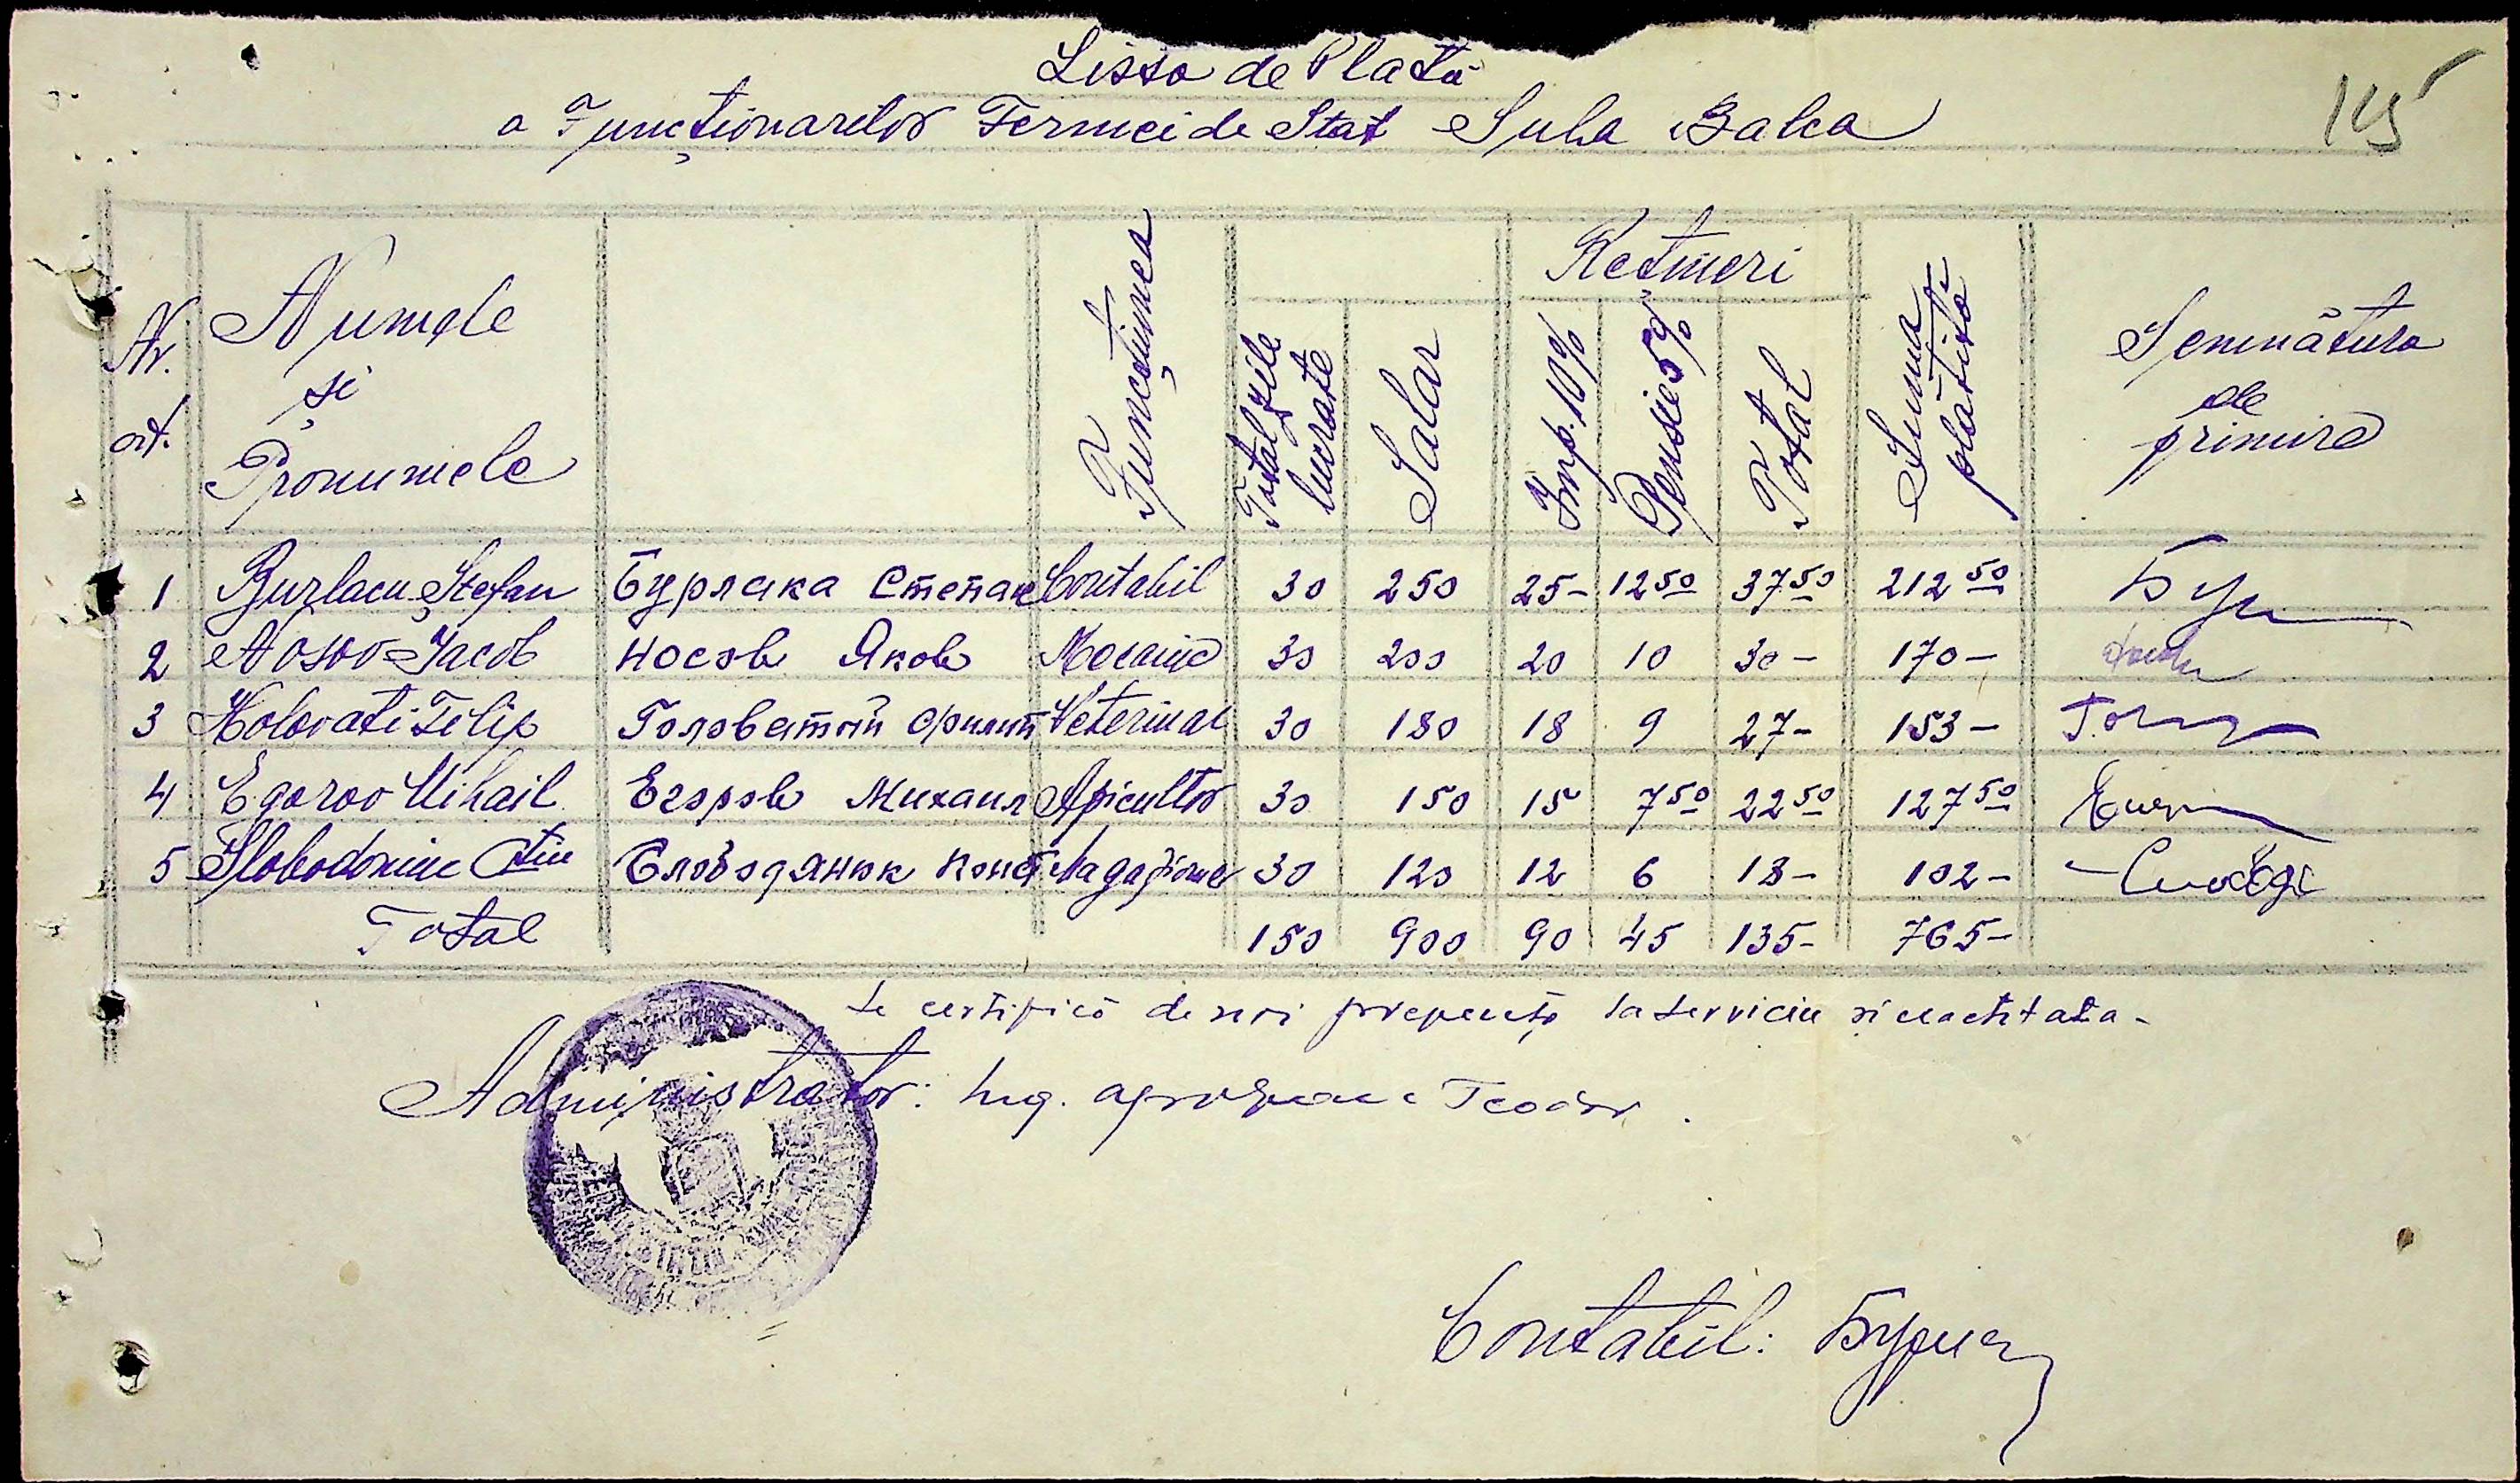 Lista de Plată
145
a Funcționarilor Fermei de Stat Suha Balca
Nr. crt.
Numele și Pronumele
Funcțiunea
Total zile lucrate
Salar
Rețineri
Imp. 10%
Pensie 5%
Total
Suma plătită
Semnătura de primire
1 Burlacu Ștefan Бурлака Степан Contabil 30 250 25- 12 50 37 50 212 50 Бур
2 Nosov Iacob Носовъ Яковъ Mecanic 30 200 20 10 30- 170-
3 Holovati Filip Головатый Филип Veterinar 30 180 18 9 27- 153-
4 Egorov Mihail Егоровъ Михаил Apicultor 30 150 15 7 50 22 50 127 50
5 Slobodoniuc Ctin Слободянюк Конст Magazioner 30 120 12 6 18- 102-
Total 150 900 90 45 135- 765-
Se certifică de noi prezența la serviciu și exactitatea-
Administrator: Ing. Teodor.
Contabil: